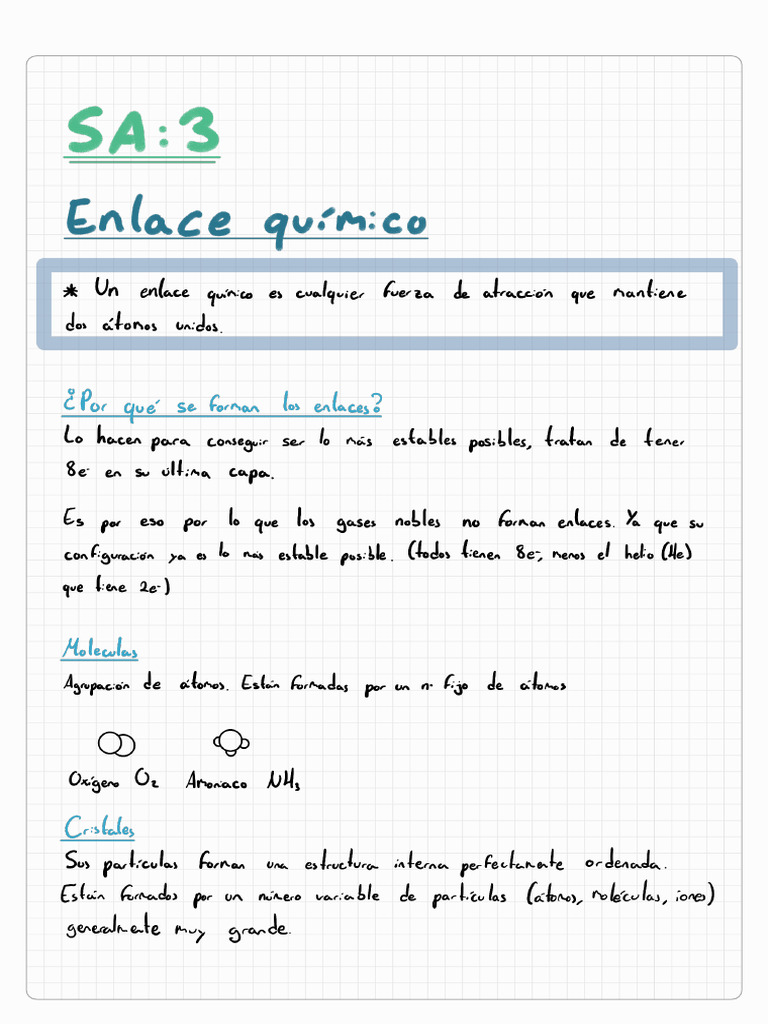 SA:3
Enlace químico
* Un enlace químico es cualquier fuerza de atracción que mantiene
dos átomos unidos.
¿Por qué se forman los enlaces?
Lo hacen para conseguir ser lo más estables posibles, tratan de tener
8e⁻ en su última capa.
Es por eso por lo que los gases nobles no forman enlaces. Ya que su
configuración ya es lo más estable posible. (todos tienen 8e⁻, menos el helio (He)
que tiene 2e⁻)
Moleculas
Agrupación de átomos. Están formadas por un nº fijo de átomos
Oxígeno O₂ Amoniaco NH₃
Cristales
Sus partículas forman una estructura interna perfectamente ordenada.
Están formados por un número variable de partículas (átomos, moléculas, iones)
generalmente muy grande.